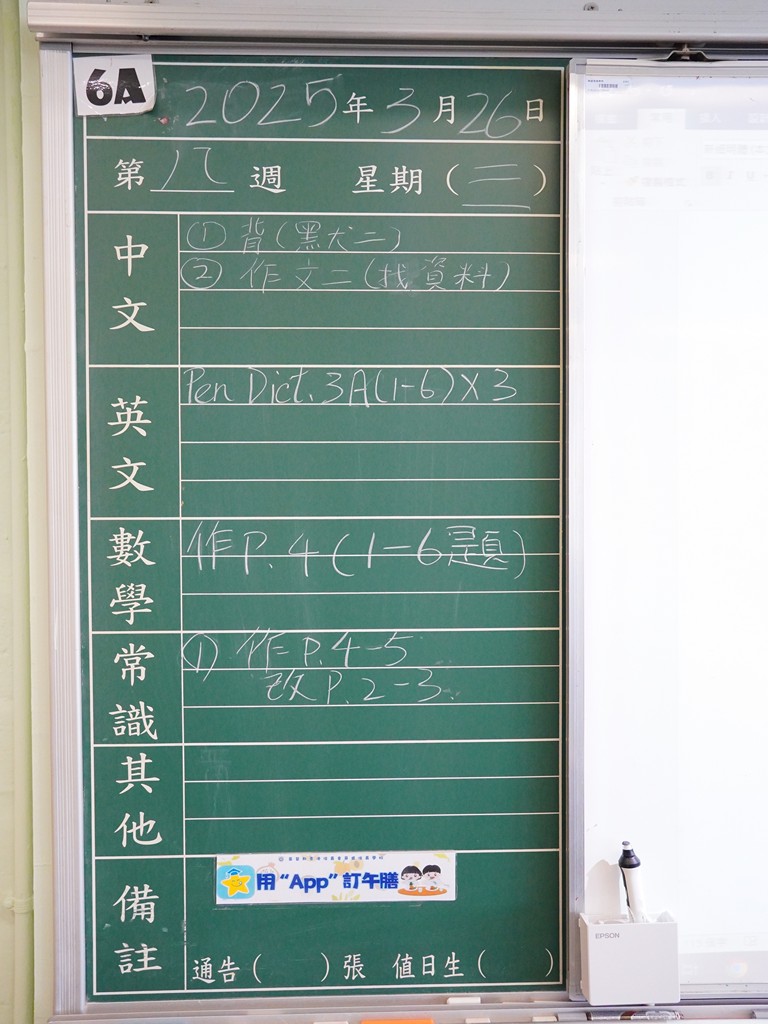 6A
2025年3月26日
第八週 星期(三)
中文
① 背(黑犬二)
② 作文二(找資料)
英文
Pen Dict. 3A(1-6)×3
數學
作P. 4(1-6題)
常識
① 作P. 4-5
改P. 2-3.
其他
備註
用“App”訂午膳
通告( )張 值日生( )
EPSON